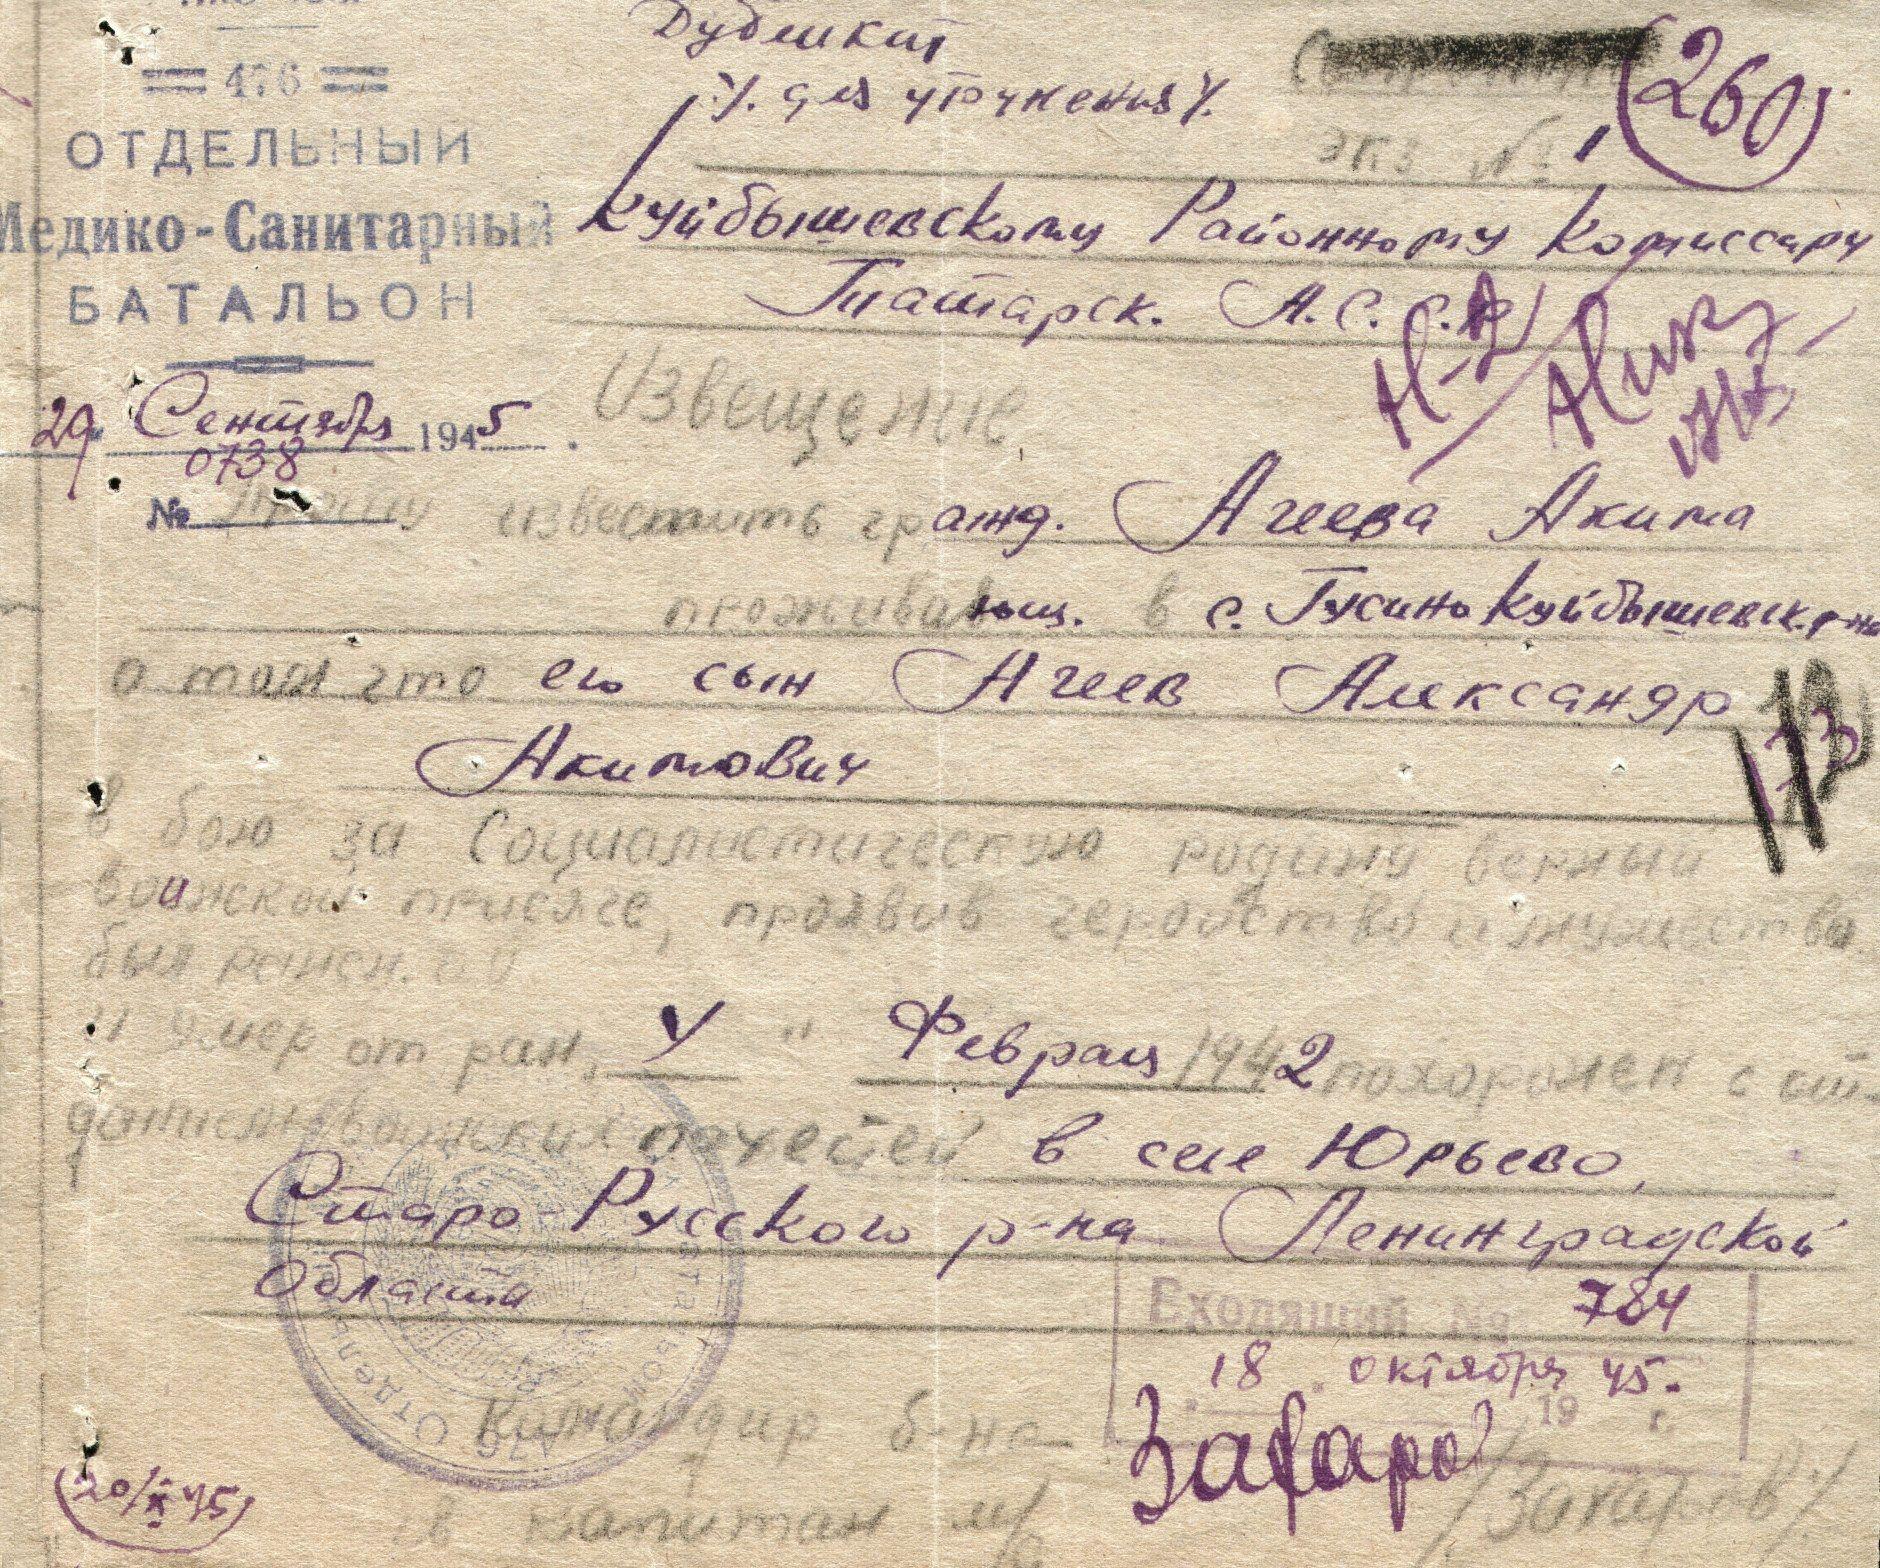 476
ОТДЕЛЬНЫЙ
Медико-Санитарный
БАТАЛЬОН
29 Сентября 1945
№ 0738
Дубликат
для уточнения
экз №1
(260)
Куйбышевскому Районному Комиссару
Татарск. А.С.С.Р
Извещение
Прошу известить гражд. Агеева Акима
проживающ. в с. Гусино Куйбышевск. р-на
о том что его сын Агеев Александр
Акимович
173
в бою за Социалистическую родину верный
воинской присяге, проявив геройство и мужество
был ранен
и умер от ран, 4 " Феврал 1942 похоронен с от-
данием воинских почестей в селе Юрьево,
Старо-Русского р-на Ленинградской
области
Входящий № 784
18 октября 45.
19 г.
Командир б-на
капитан м/с
Захаров /Захаров/
(20/X 45)